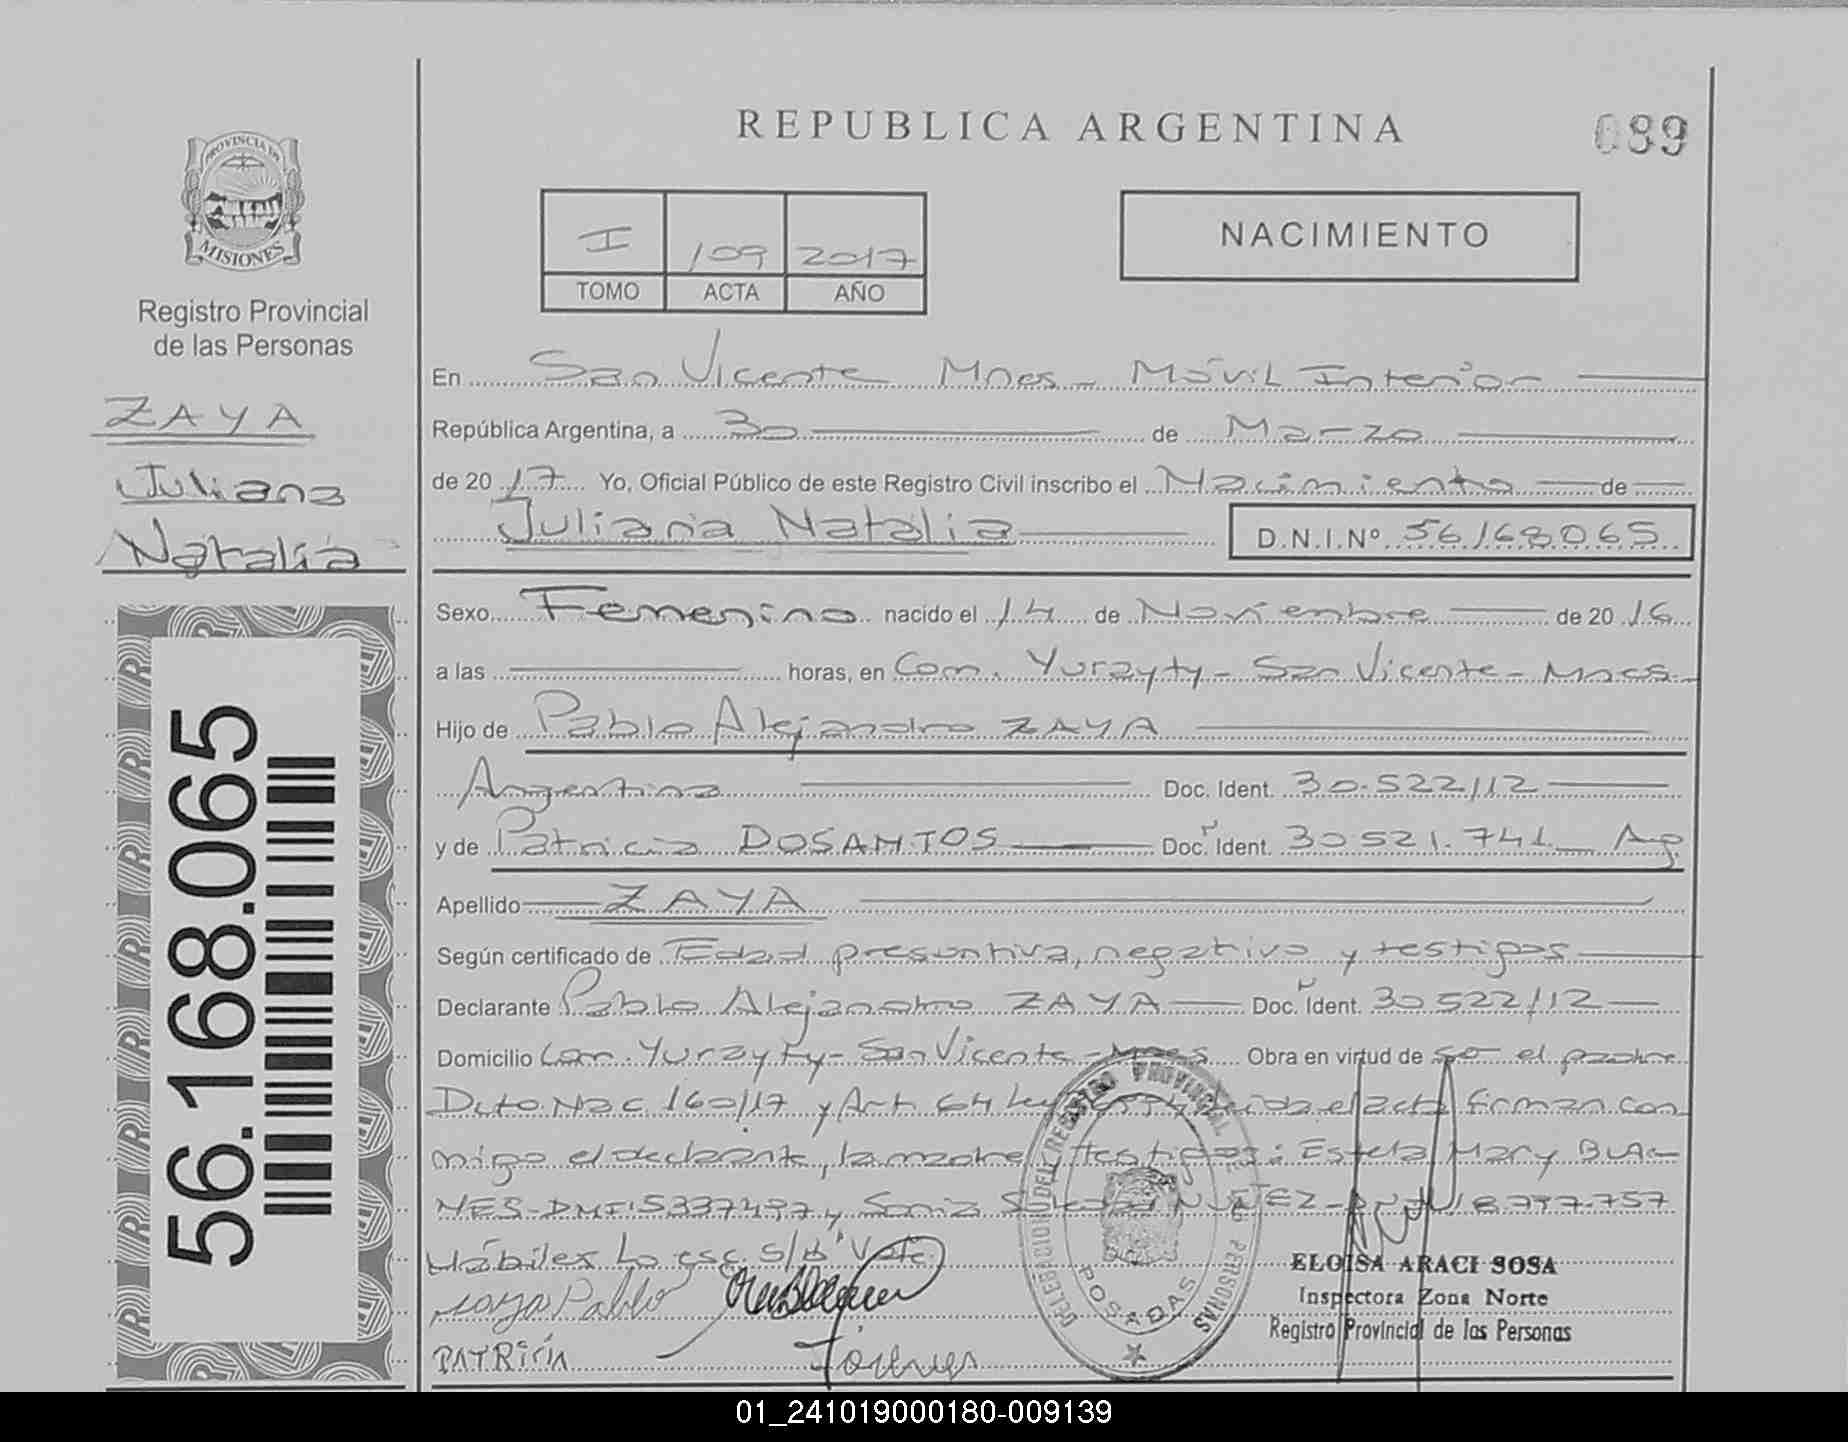 REPUBLICA ARGENTINA
089
PROVINCIA DE
MISIONES
Registro Provincial
de las Personas
I 109 2017
TOMO ACTA AÑO
NACIMIENTO
ZAYA
Juliana
Natalia
56.168.065
En San Vicente Mnes - Móvil Interior
República Argentina, a 30 de Marzo
de 20 17 Yo, Oficial Público de este Registro Civil inscribo el Nacimiento de
Juliana Natalia D.N.I.Nº 56168065
Sexo Femenino nacido el 14 de Noviembre de 20 16
a las horas, en Com. Yurzyty - San Vicente - Mnes.
Hijo de Pablo Alejandro ZAYA
Argentina Doc. Ident. 30.522112
y de Patricia DOSANTOS Doc. Ident. 30521.741 Ag
Apellido ZAYA
Según certificado de Edad presuntiva, negativo y testigos
Declarante Pablo Alejandro ZAYA Doc. Ident. 30522112
Domicilio Com. Yurzyty - San Vicente - Mnes Obra en virtud de so el padre
Dcto Nac 160/17 y Art 64 Ley el acta firman con
migo el declarante, la madre y testigos: Estela Mary BLAC
NES - DNI 5337497 y Sonia NUÑEZ 18.797.757
Hábiles
Zaya Pablo
PATRICIA
DELEGACION DEL REGISTRO PROVINCIAL DE LAS PERSONAS
POSADAS
ELOISA ARACI SOSA
Inspectora Zona Norte
Registro Provincial de las Personas
01_241019000180-009139